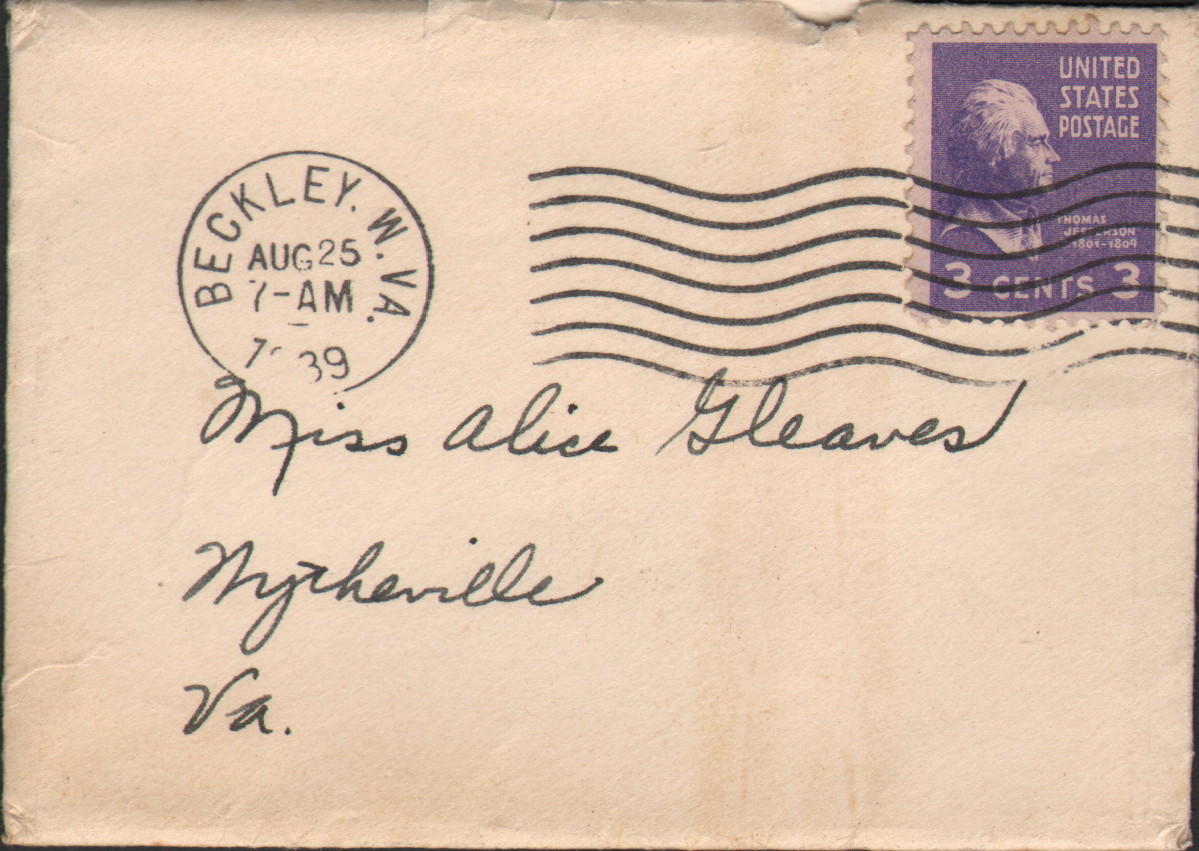 UNITED
STATES
POSTAGE
THOMAS
JEFFERSON
1801-1809
3 CENTS 3
BECKLEY. W. VA.
AUG 25
7-AM
Miss Alice Gleaves
Wytheville
Va.